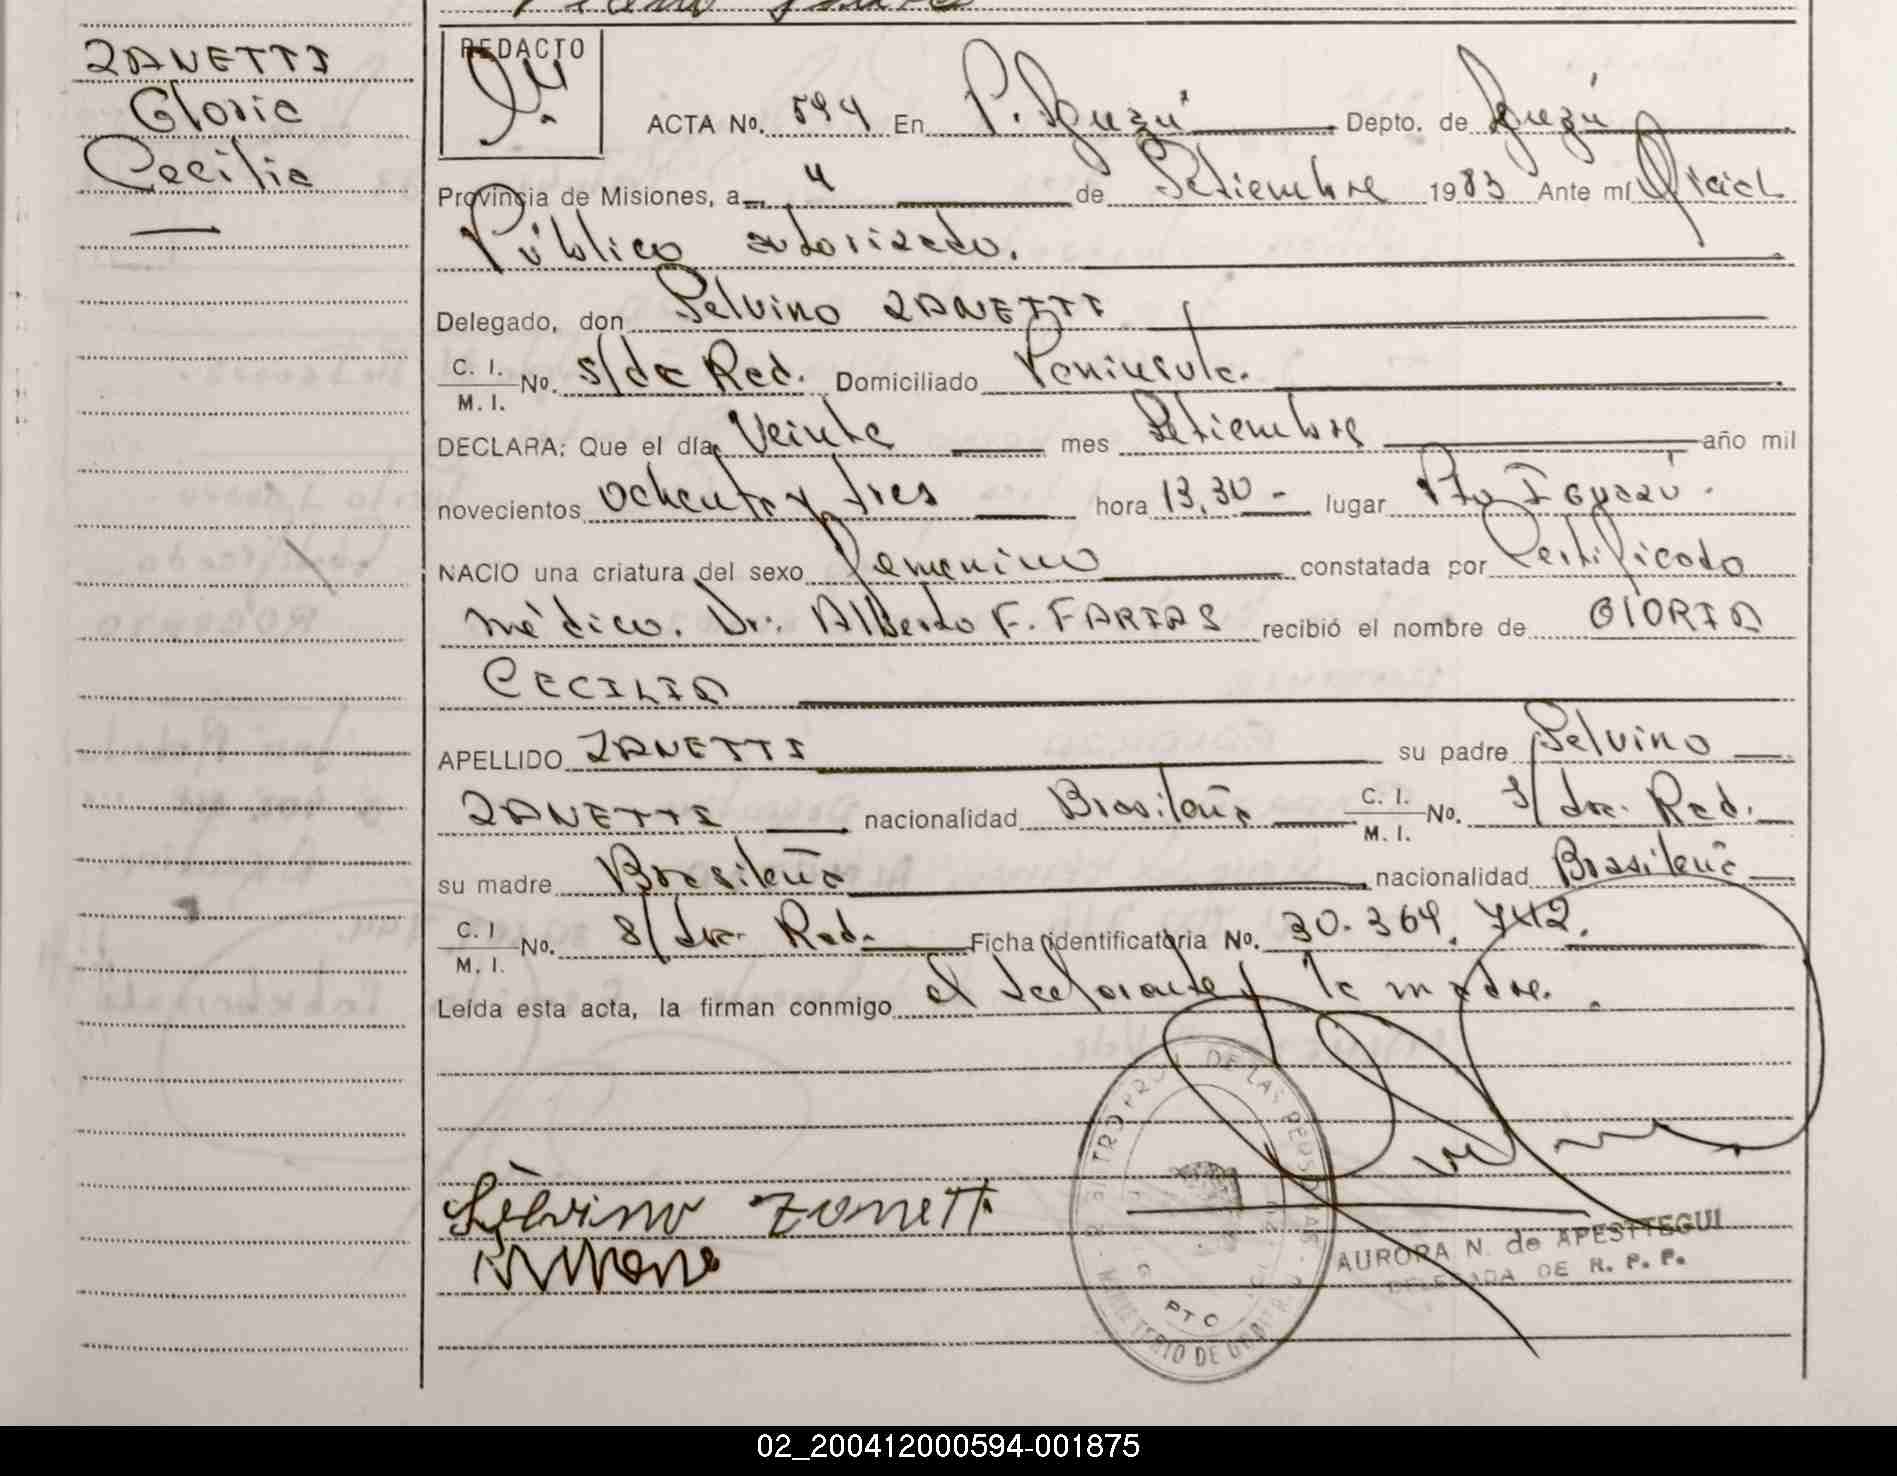 ZANETTI
Gloria
Cecilia
REDACTO
ACTA No. 594 En P. Iguazú Depto. de Iguazú
Provincia de Misiones, a 4 de Setiembre 1983 Ante mí Oficial
Público autorizado.
Delegado, don Selvino ZANETTI
C. I. / M. I. No. s/de Red. Domiciliado Peninsula.
DECLARA: Que el día Veinte mes Setiembre año mil
novecientos ochenta y tres hora 13,30 - lugar Pto Iguazú.
NACIO una criatura del sexo femenino constatada por Certificado
médico. Dr. Alberto F. FARIAS recibió el nombre de GlORIA
CECILIA
APELLIDO ZANETTI su padre Selvino
ZANETTI nacionalidad Brasileña C. I. / M. I. No. s/ dre. Red.
su madre Brasileña nacionalidad Brasileña
C. I / M. I. No. s/ dre. Red. Ficha identificatoria No. 30.364.742.
Leída esta acta, la firman conmigo el declarante y la madre.
Selvino Zanetti
AURORA N. de APESTTEGUI
DELEGADA DE R. P. P.
PTO
MINISTERIO DE
DE LAS PERSONAS
02_200412000594-001875